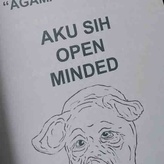 "AGAMA
AKU SIH
OPEN
MINDED